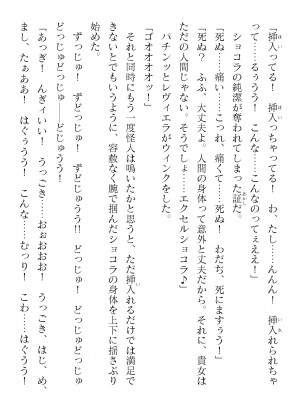 「挿入ってる！　挿入っちゃってる！　わ、たし……んんん！　挿入れられちゃ
って……るぅうう！　こんな……こんなのってぇええ！」
ショコラの純潔が奪われてしまった証だ。
「死ぬ……痛い……これ、痛くて……死ぬ！　わだち、死にますぅ！」
「死ぬ？　ふふ、大丈夫よ。人間の身体って意外と丈夫だから。それに、貴女は
ただの人間じゃない。そうでしょ……エクセルショコラ♪」
パチンッとレヴィエラがウィンクをした。
「ゴオオオオッ！」
それと同時にもう一度怪人は鳴いたかと思うと、ただ挿入れるだけでは満足で
きないとでもいうように、容赦なく腕で掴んだショコラの身体を上下に揺さぶり
始めた。
ずっじゅ！　ずどっじゅ！　ずどじゅうう!!　どっじゅ！　どっじゅどっじゅ
どっじゅどっじゅ……どじゅうう！
「あっぎ！　んぎィいい！　うっごき……おぉおおお！　うっごき、はじ、め、
まし、たぁああ！　はぐぅうう！　こんな……むっり！　こわ……はぐうう！